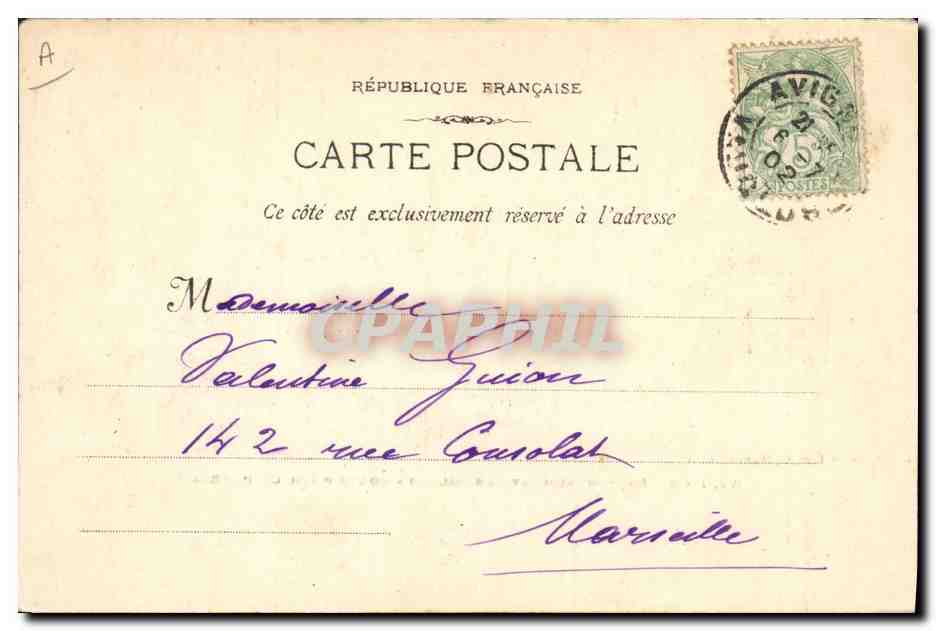 A
RÉPUBLIQUE FRANÇAISE
CARTE POSTALE
Ce côté est exclusivement réservé à l'adresse
AVIGN
21
6
02
5
POSTES
Mademoiselle
CPAPHIL
Valentine Guion
142 rue Consolat
Marseille